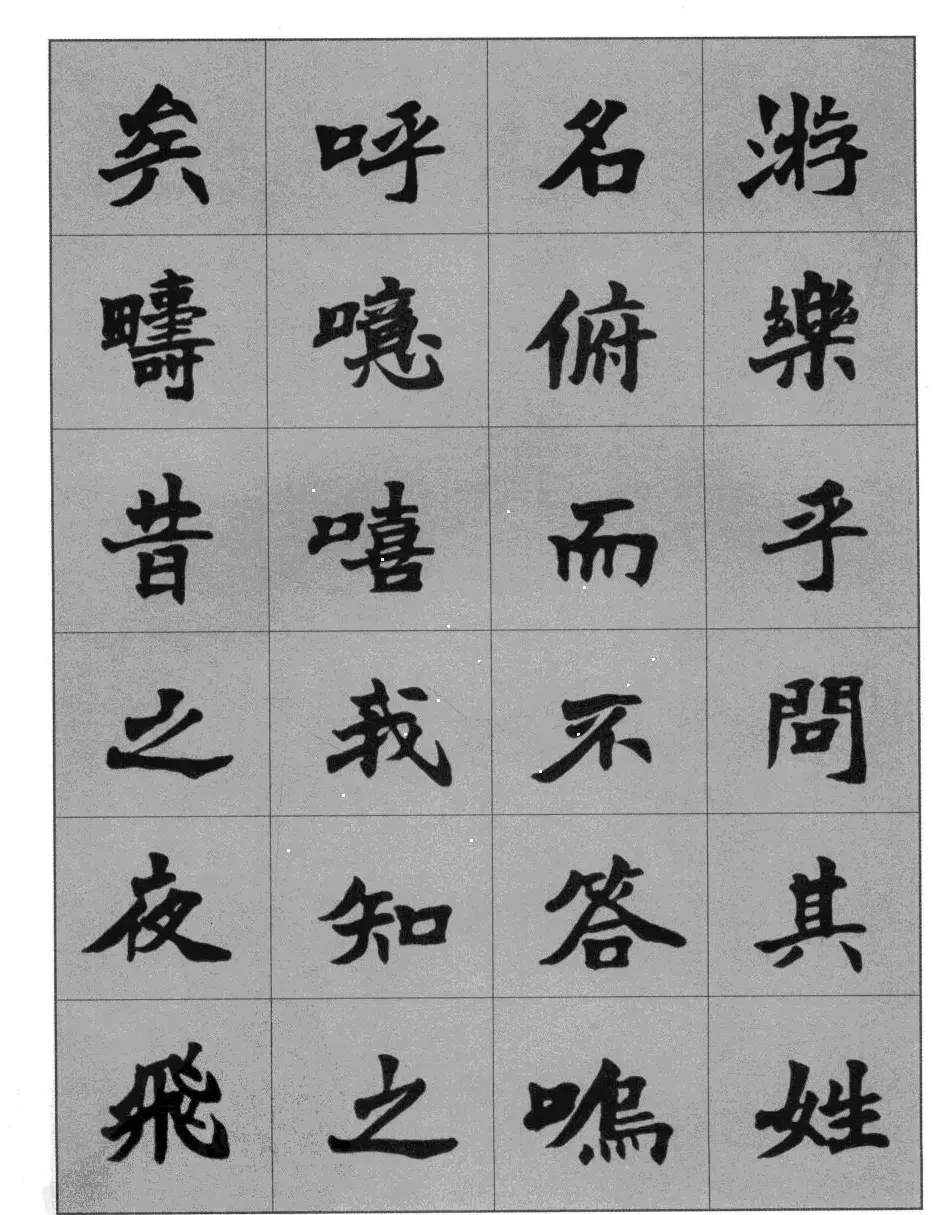 游樂乎問其姓
名俯而不答嗚
呼噫嘻我知之
矣疇昔之夜飛